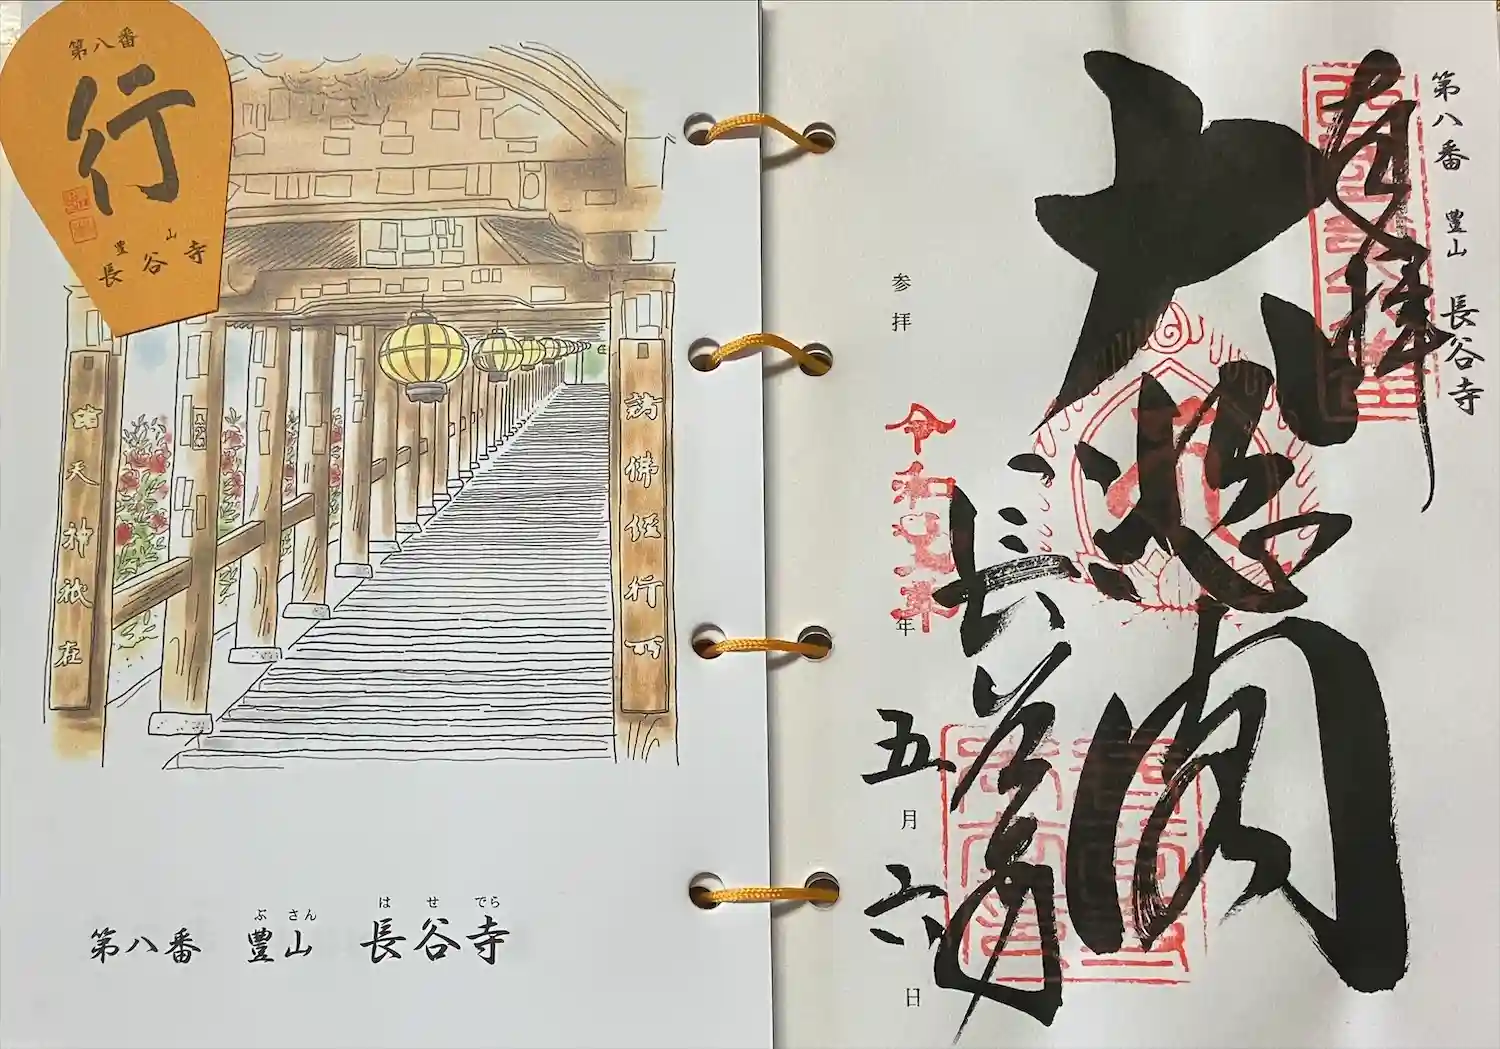 第八番
行
豊山
長谷寺
諸天神祇在
訪佛経行所
第八番 豊山 長谷寺
ぶさん はせでら
第八番 豊山 長谷寺
奉拝
大悲閣
長谷寺
参拝
令和元年
年
五月
六日